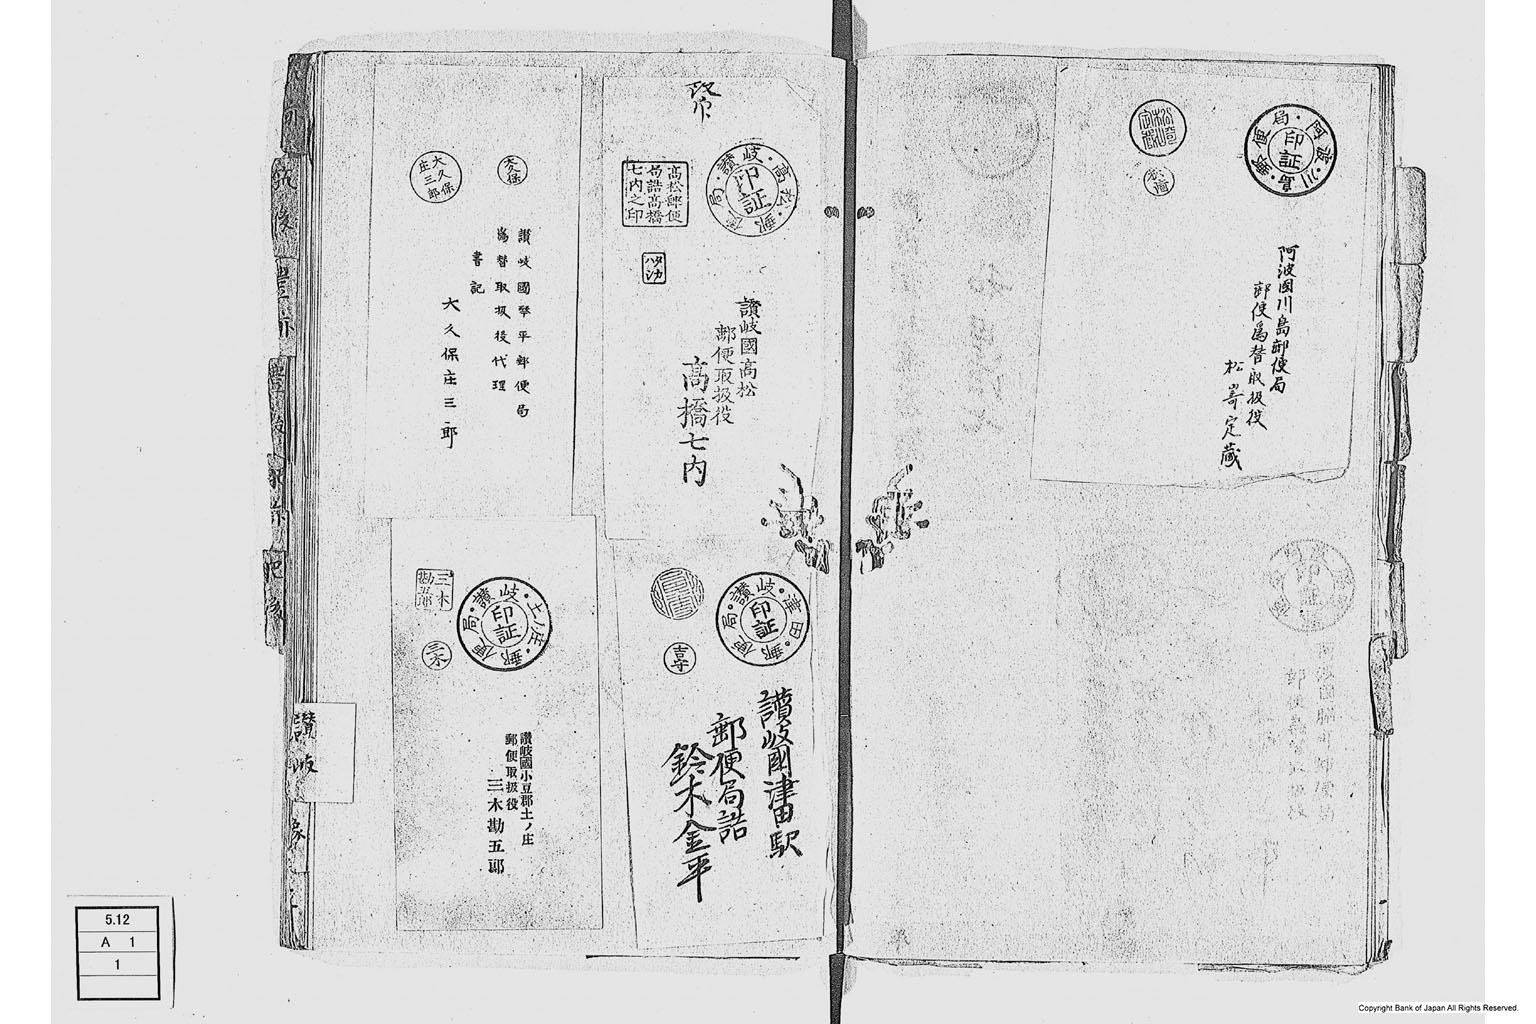 阿波・川島・郵便局・
印証
松﨑定蔵
阿波国川島郵便局
郵便為替取扱役
松嵜定蔵
改印
讃岐・高松・郵便局・
印証
高松郵便
局詰高橋
七内之印
讃岐國高松
郵便取扱役
高橋七内
大久保
大久保
庄三郎
讃岐國琴平郵便局
為替取扱役代理
書記
大久保庄三郎
讃岐・津田・郵便局・
印証
吉守
讃岐國津田駅
郵便局詰
鈴木金平
讃岐・土ノ庄・郵便局・
印証
三木
勘五郎
三木
讃岐國小豆郡土ノ庄
郵便取扱役
三木勘五郎
筑後
豊前
豊後
肥前
肥後
讃岐
5.12
A 1
1
Copyright Bank of Japan All Rights Reserved.